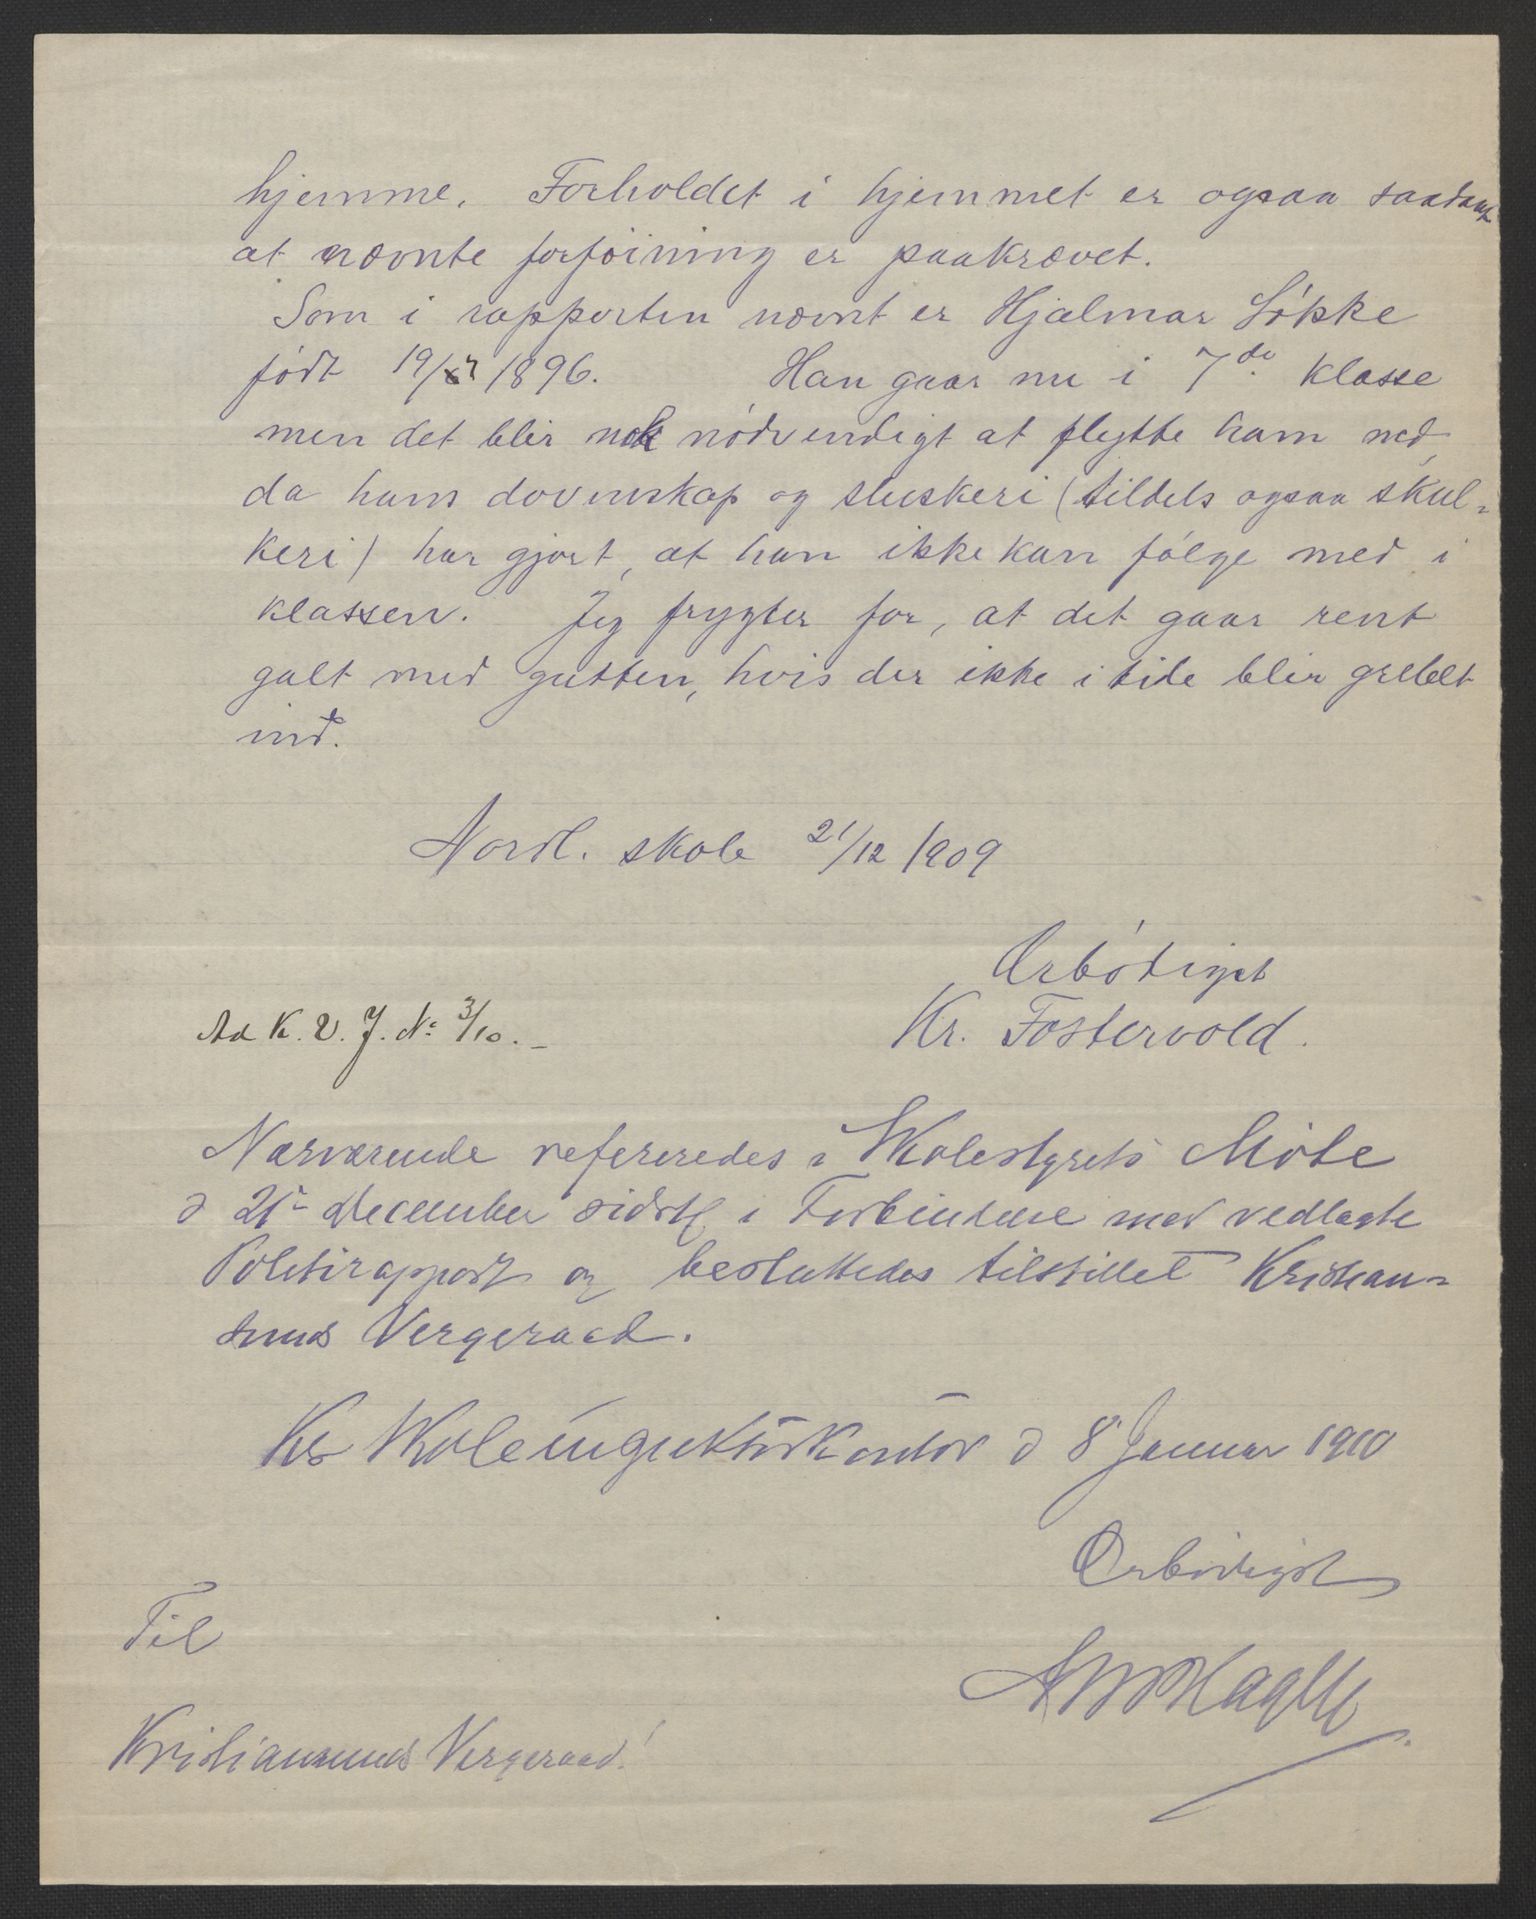 hjemme. Forholdet i hjemmet er ogsaa saadant
at nævnte forföining er paakrævet.
Som i rapporten nævnt er Hjalmar Löpke
født 19/ 1896. Han gaar nu i 7de klasse
men det blir nok nödvendigt at flytte ham ned,
da hans dovenskap og sluskeri (tildels ogsaa skul-
keri) har gjort, at han ikke kan følge med i
klassen. Jeg frygter for, at det gaar rent
galt med gutten, hvis der ikke i tide blir grebet
ind.
Nordl. skole 21/12 1909
Ærbödigst
Kr. Fostervold.
Ad K. V. J. No 3/10. –
Nærværende refereredes i Skolestyrets Möte
d 21 December sidstl. i Forbindelse med vedlagte
Politirapport og besluttedes tilstillet Kristian-
sunds Vergeraad.
Ks Skoleinspektörkontor d 8 Januar 1910
Ærbödigst
Til
Kristiansunds Vergeraad!